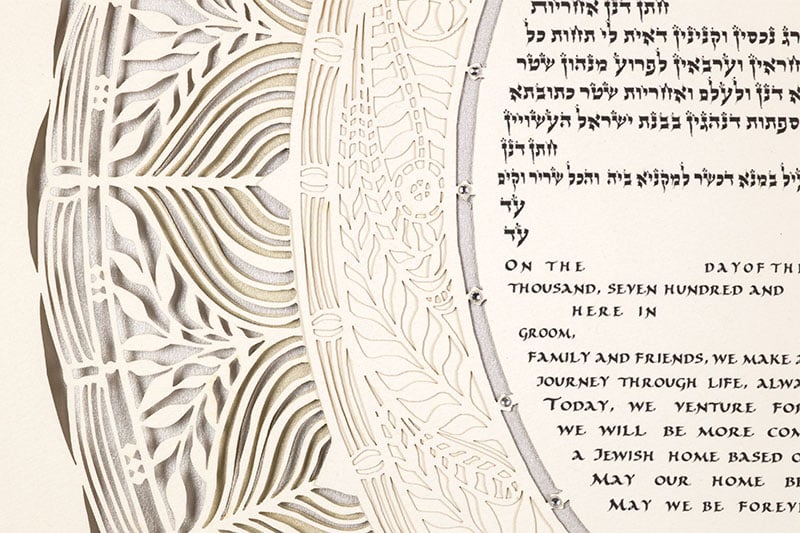 חתן דנן אחריות
רג נכסין וקנינין דאית לי תחות כל
חראין וערבאין לפרוע מנהון שטר
א דנן ולעלם ואחריות שטר כתובתא
ספתות דנהגין בבנת ישראל העשויין
חתן דנן
יל במנא דכשר למקניא ביה והכל שריר וקים
עד
עד
ON THE DAY OF THE
THOUSAND, SEVEN HUNDRED AND
HERE IN
GROOM,
FAMILY AND FRIENDS, WE MAKE
JOURNEY THROUGH LIFE, ALWA
TODAY, WE VENTURE FOR
WE WILL BE MORE COM
A JEWISH HOME BASED O
MAY OUR HOME BE
MAY WE BE FOREV